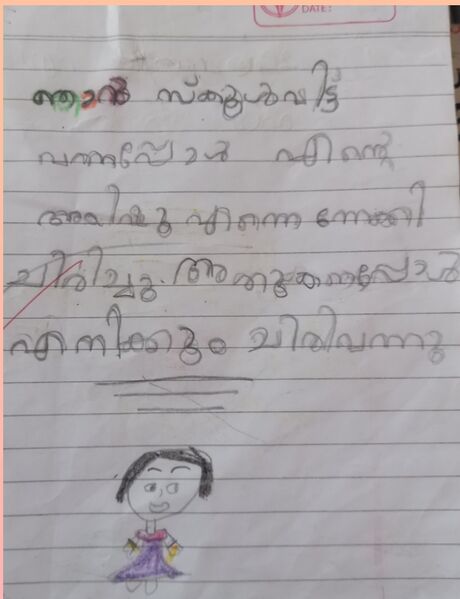 DATE:
ഞാൻ സ്കൂൾവിട്ട്
വന്നപ്പോൾ എന്റെ
എന്നെ നോക്കി
ചിരിച്ചു. അതുകണ്ടപ്പോൾ
എനിക്കും ചിരിവന്നു